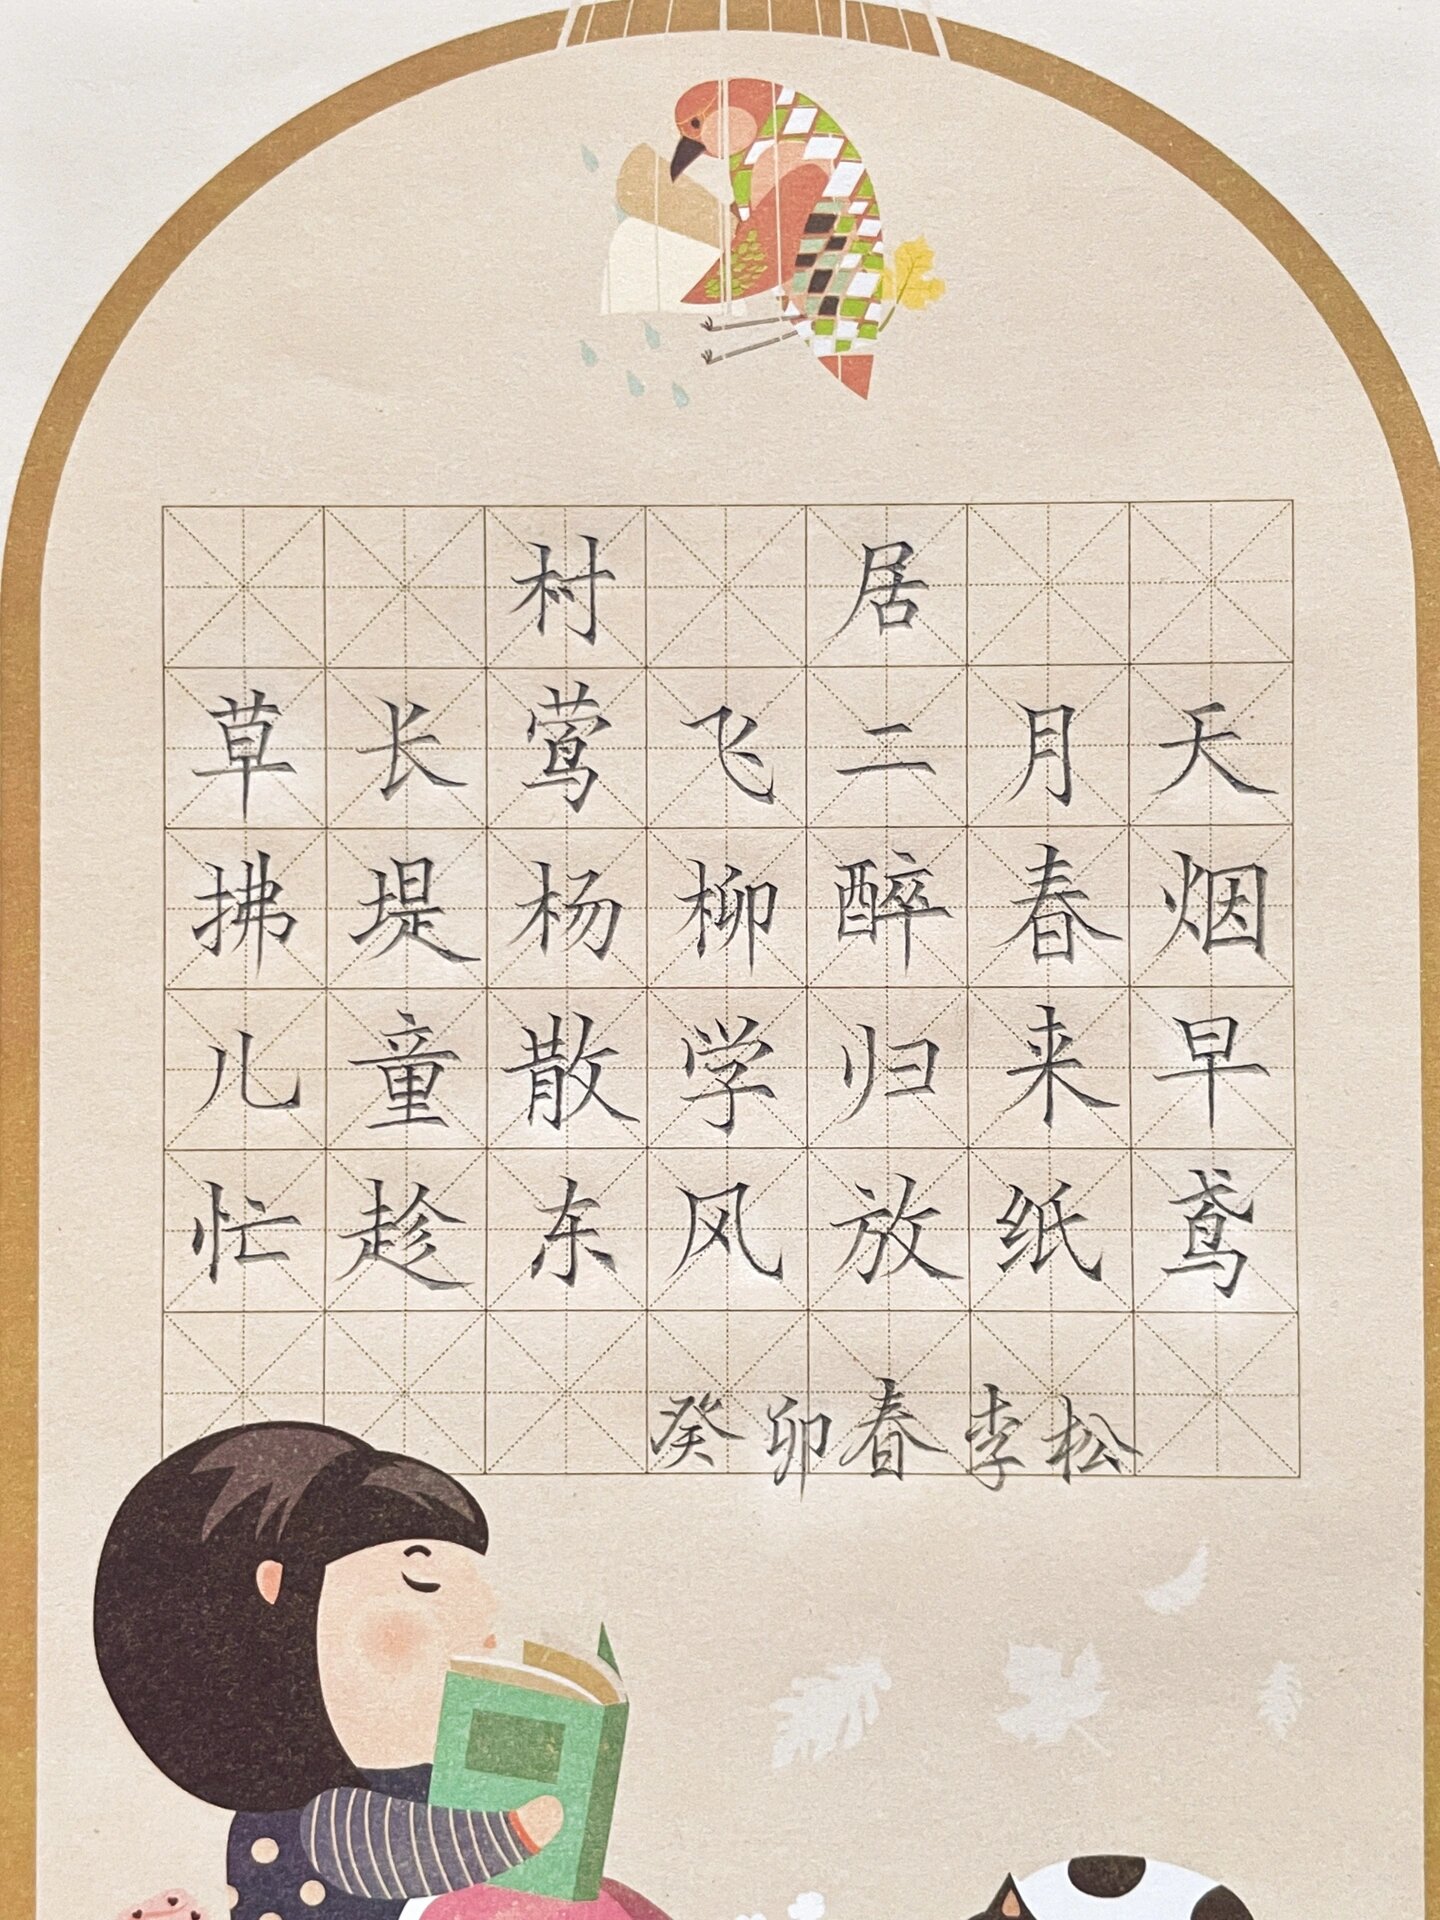 村居
草长莺飞二月天
拂堤杨柳醉春烟
儿童散学归来早
忙趁东风放纸鸢
癸卯春李松